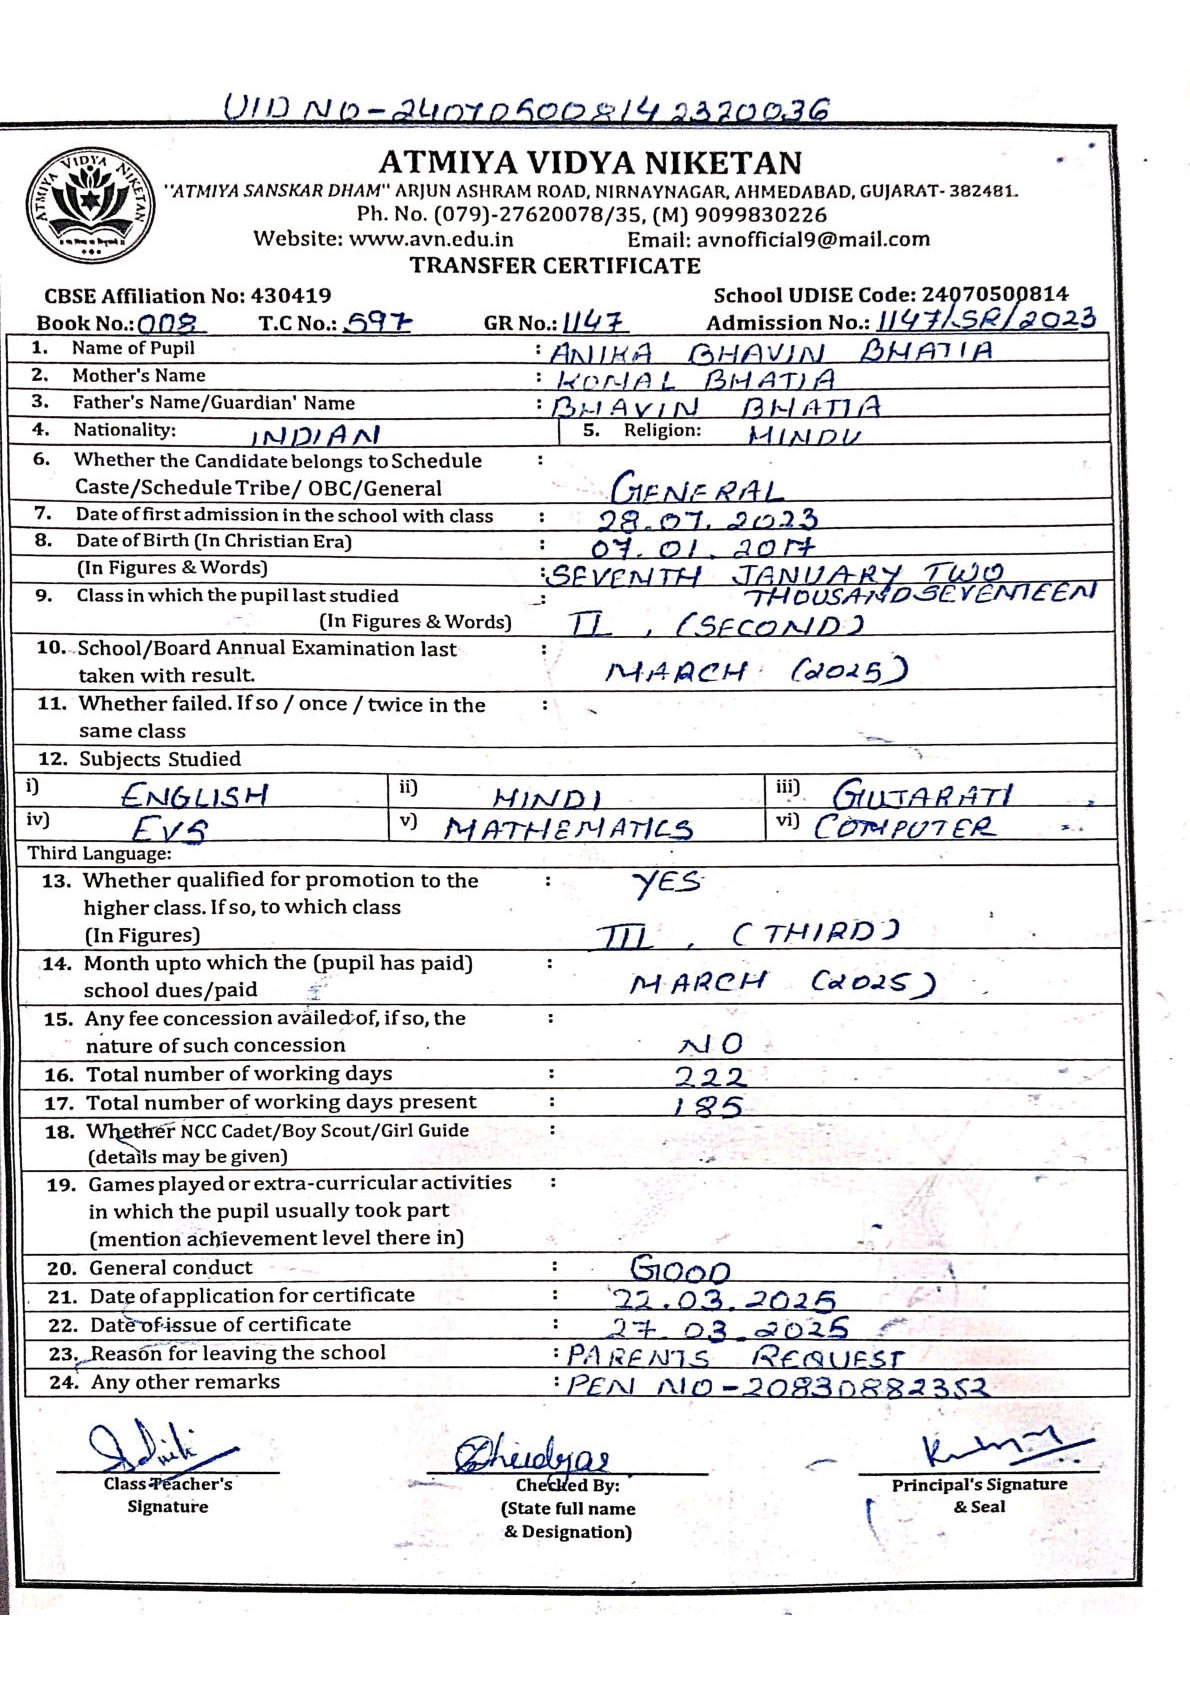 UID NO-240705008142320036
ATMIYA VIDYA NIKETAN
ATMIYA VIDYA NIKETAN
"ATMIYA SANSKAR DHAM" ARJUN ASHRAM ROAD, NIRNAYNAGAR, AHMEDABAD, GUJARAT- 382481.
Ph. No. (079)-27620078/35, (M) 9099830226
Website: www.avn.edu.in Email: avnofficial9@mail.com
TRANSFER CERTIFICATE
CBSE Affiliation No: 430419 School UDISE Code: 24070500814
Book No.: 008 T.C No.: 597 GR No.: 1147 Admission No.: 1147/SR/2023
1. Name of Pupil : ANIKA BHAVIN BHATIA
2. Mother's Name : KOMAL BHATIA
3. Father's Name/Guardian' Name : BHAVIN BHATIA
4. Nationality: INDIAN 5. Religion: HINDU
6. Whether the Candidate belongs to Schedule :
Caste/Schedule Tribe/ OBC/General GENERAL
7. Date of first admission in the school with class : 28.07.2023
8. Date of Birth (In Christian Era) : 07.01.2017
(In Figures & Words) : SEVENTH JANUARY TWO
9. Class in which the pupil last studied : THOUSAND SEVENTEEN
(In Figures & Words) II, (SECOND)
10. School/Board Annual Examination last :
taken with result. MARCH (2025)
11. Whether failed. If so / once / twice in the :
same class
12. Subjects Studied
i) ENGLISH ii) HINDI iii) GUJARATI
iv) EVS v) MATHEMATICS vi) COMPUTER
Third Language:
13. Whether qualified for promotion to the : YES
higher class. If so, to which class
(In Figures) III, (THIRD)
14. Month upto which the (pupil has paid) :
school dues/paid MARCH (2025)
15. Any fee concession availed of, if so, the :
nature of such concession NO
16. Total number of working days : 222
17. Total number of working days present : 185
18. Whether NCC Cadet/Boy Scout/Girl Guide :
(details may be given)
19. Games played or extra-curricular activities :
in which the pupil usually took part
(mention achievement level there in)
20. General conduct : GOOD
21. Date of application for certificate : 22.03.2025
22. Date of issue of certificate : 27.03.2025
23. Reason for leaving the school : PARENTS REQUEST
24. Any other remarks : PEN NO-20830882352
Class Teacher's Checked By: Principal's Signature
Signature (State full name & Seal
& Designation)